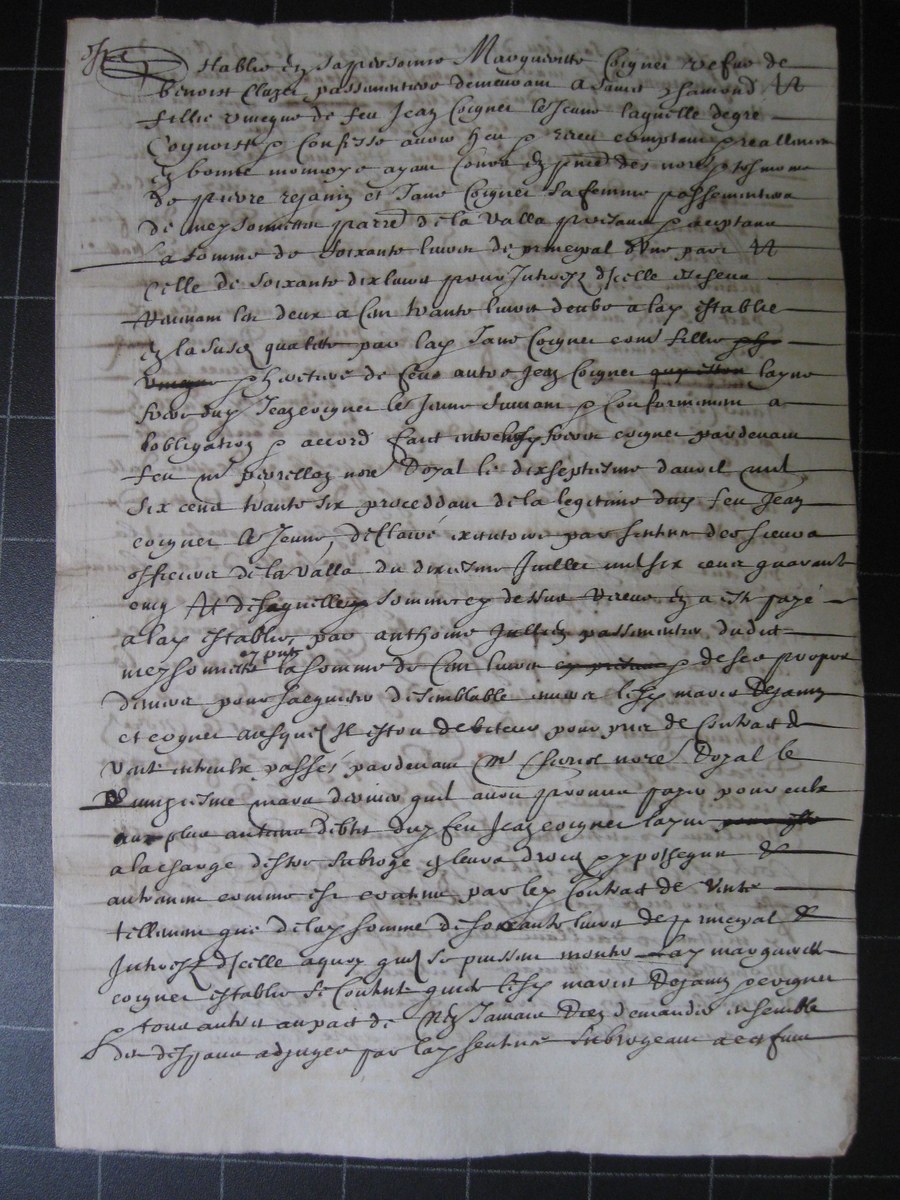 Establie en sa personne Margueritte Coignet vefve de
benoist Clozel passementiere demeurant a Sainct Chamond et
fillie unicque de feu Jean Coignet le Jeune laquelle de gre
Cognoist & Confesse avoir heu & receu comptant & reallement
en bonne monnoye ayant Cours en pnce des nore & tesmoins
de pierre dejanin et Jane Coignet sa femme passementiers
de meysonnette parre de la Valla presans & acceptans
La somme de Soixante livres de principal d'une part et
Celle de Soixante dix livres pour Interestz d'Icelle
Revenant les deux a Cent trante livres deube a lad establie
en la susd qualitte par lad Jane Coignet comme fillie
& heritiere de autre Jean Coignet layne
frere dud Jean coignet le Jeune Suivant & Conformement a
l'obligation & accord faict entre lesd freres coignet pardevant
feu me perrellon nore Royal le dixseptiesme d'avril mil
six cens trante six proceddant de la legitime dud feu Jean
coignet le Jeune, desclairé executoire par sentence des sieurs
officiers de la Valla du dixiesme Juillet mil six cens quarante
cinq Et desquelles sommes en a esté payé
a lad establie par anthoine Jullien passementier dudict
meysonnette la somme de Cent livres & de ses propres
deniers pour s'acquitter de semblable envers lesd mariés dejanin
et coignet ausquelz Il estoit debiteur pour prix de Contract de
vente entre eulx passés pardevant Me nore Royal le
mars dernier quil avoit promis payer pour eulx
aux plus antiens debtes dud feu Jean coignet layne
a la charge d'estre subrogé en leurs droictz & ypotheque &
autrement comme est contenu par led Contract de Vente
tellement que de lad somme de soixante livres de principal &
Interestz d'Icelle a quoy quilz se puissent monter lad marguerite
coignet establie se Contente quitte lesd mariés dejanin & coignet
& tous autres avec pact de n'en Jamais Rien demander ensemble
des despans adjuges par lad sentence Subrogeant a cet